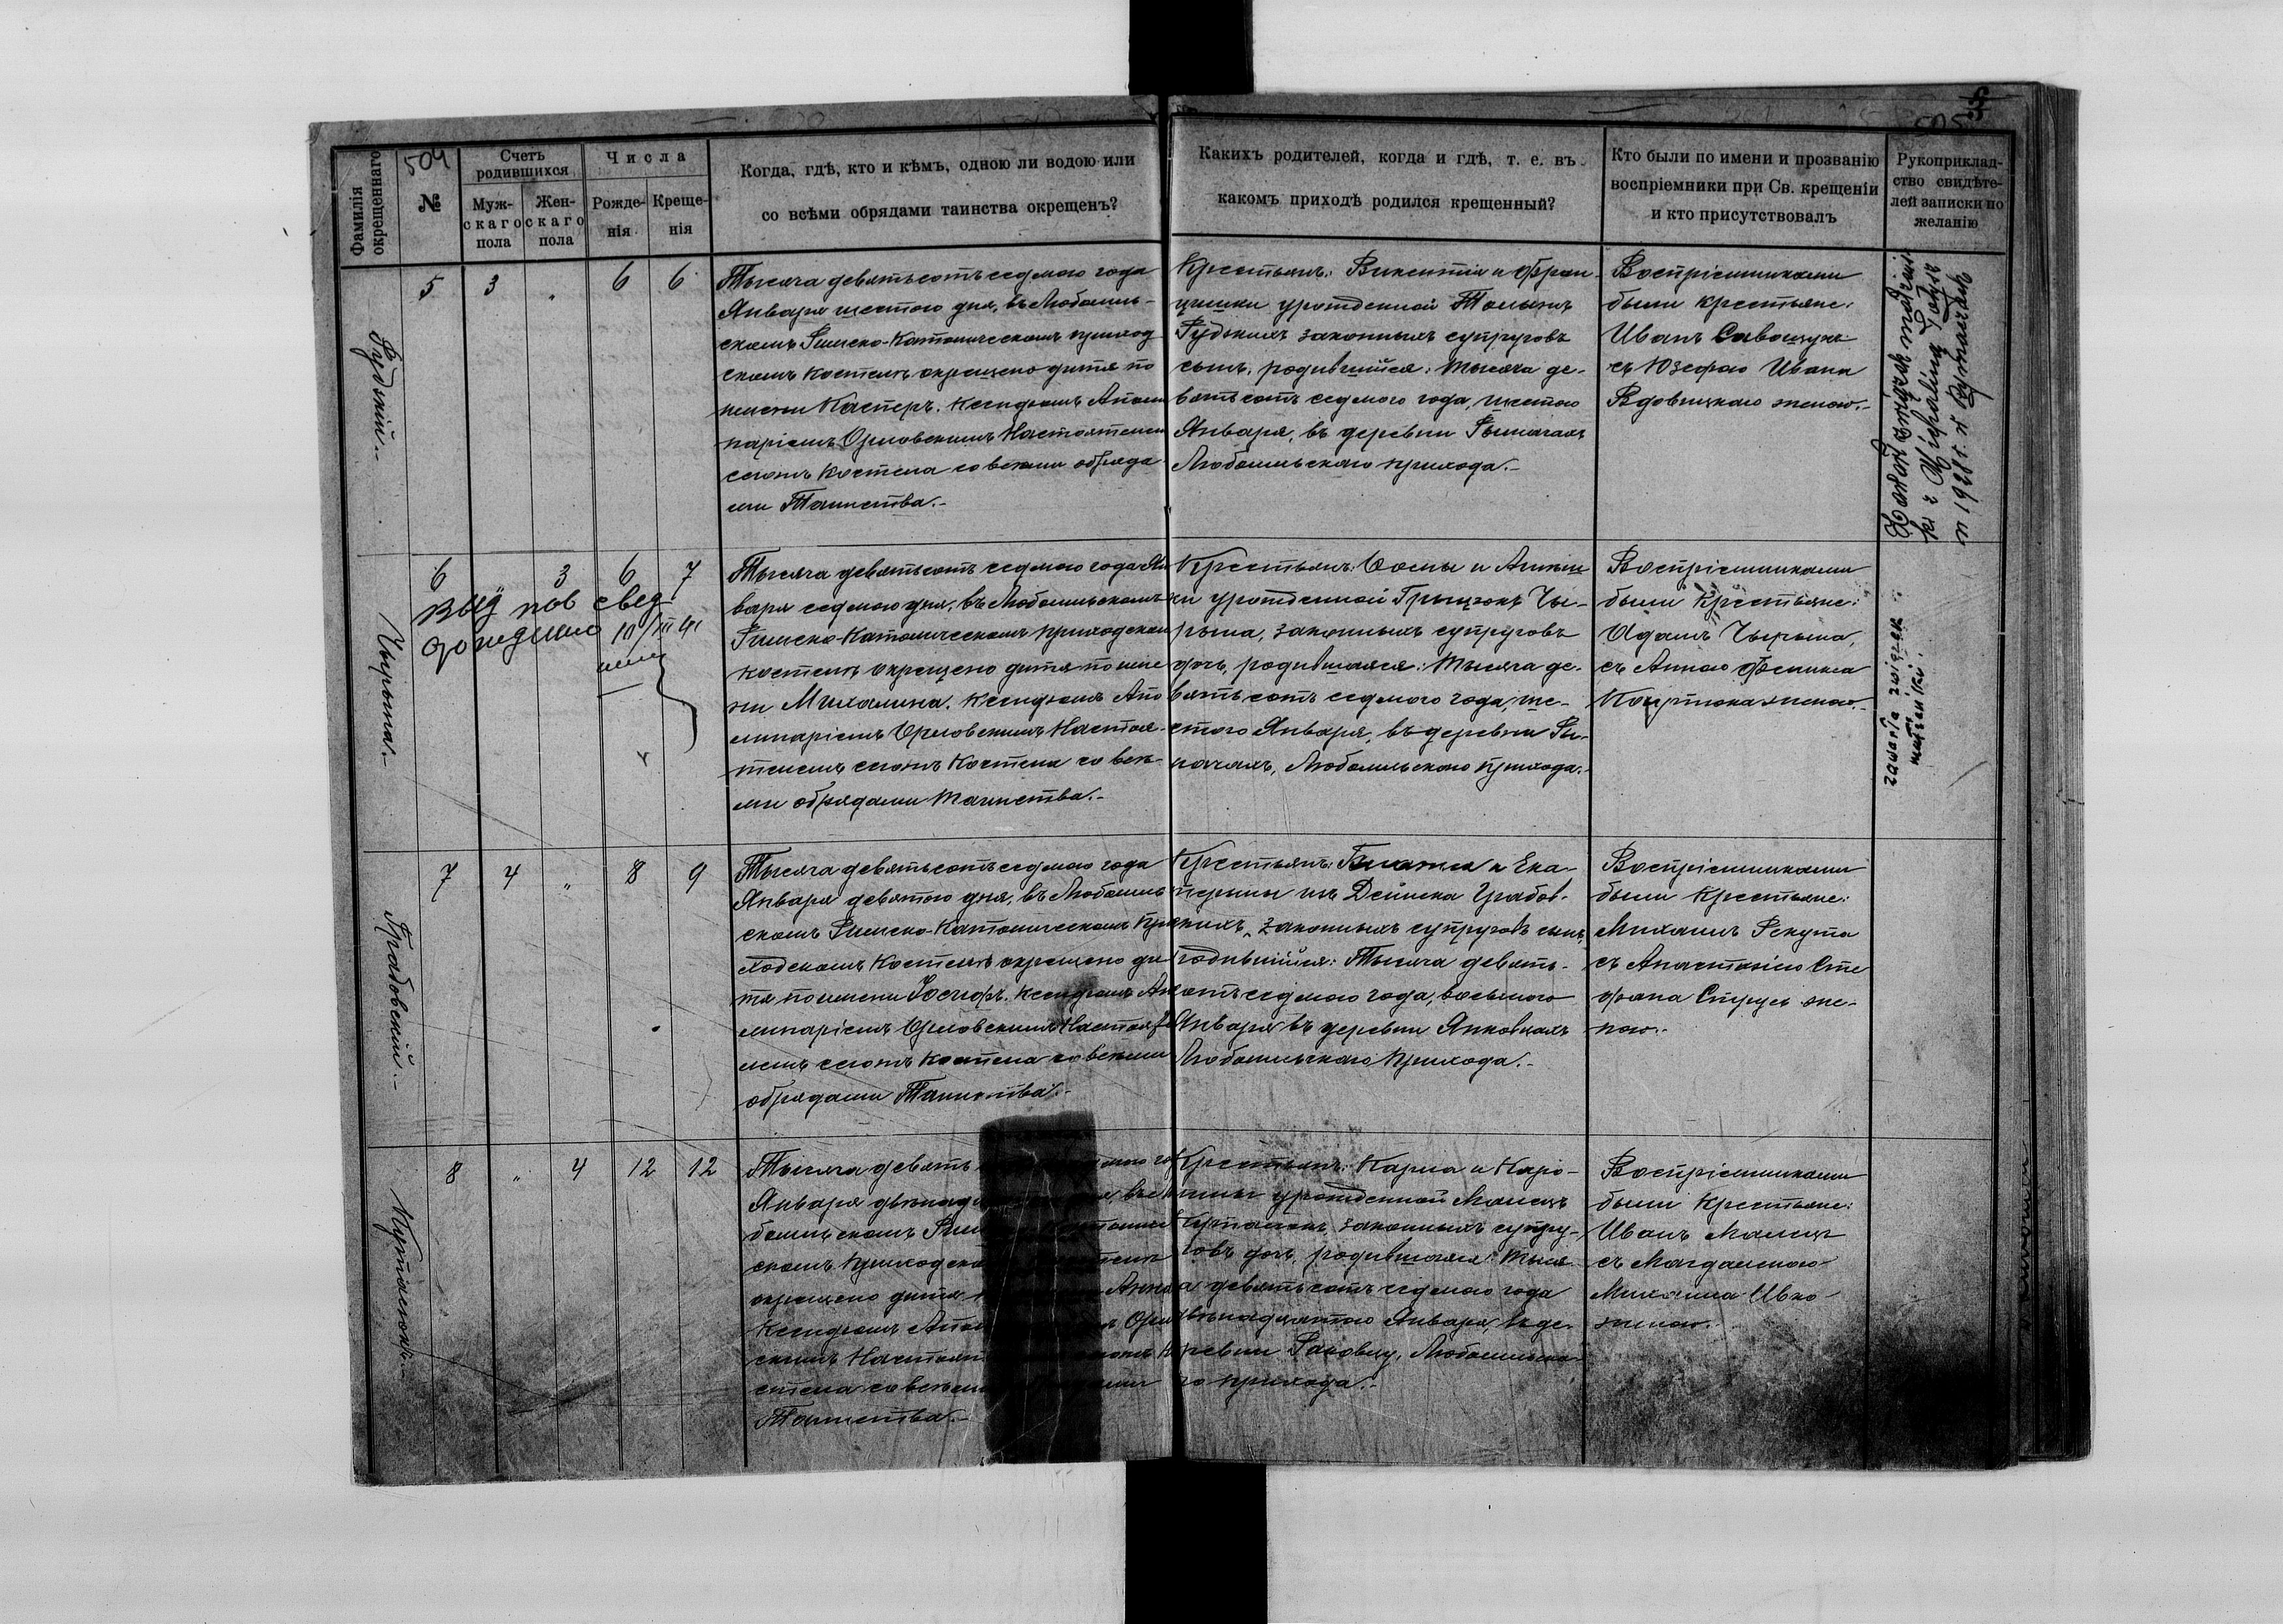 504
505
Фамилія окрещеннаго
№
Счетъ родившихся
Муж-скаго пола
Жен-скаго пола
Числа
Рожде-нія
Креще-нія
Когда, гдѣ, кто и кѣмъ, одною ли водою или
со всѣми обрядами таинства окрещенъ?
Какихъ родителей, когда и гдѣ, т. е. въ
какомъ приходѣ родился крещенный?
Кто были по имени и прозванію
воспріемники при Св. крещеніи
и кто присутствовалъ
Рукоприклад-
ство свидѣте-
лей записки по
желанію
Рудскій.-
5 3 " 6 6
Тысяча девятьсотъ седмого года
Января шестого дня, въ Любомль-
скомъ Римско-Католическомъ приход
скомъ Костелѣ окрещено дитя по
имени Касперъ. Ксендзомъ Аполи
наріемъ Орловскимъ Настоятелем
сегожъ Костела со всѣми обряда
ми Таинства.-
Крестьянъ: Викентія и Фран-
цишки урожденной
законныхъ супруговъ
сынъ, родившійся: тысяча де-
вятьсотъ седмого года, шестого
Января, въ деревни Рымачахъ
Любомльскаго прихода.-
Воспріемниками
были крестьяне:
Иванъ Савощукъ
съ Юзефою Ивана
Вдовицкаго женою.-
w 1928 r. w Rymaczach
zawarła związek
małżeński.
Чырыта.-
6 3 6 7
выд пов свед
рождении 10/III 41
Тысяча девятьсотъ седмого года Ян
варя седмого дня, въ Любомльскомъ
Римско-Католическомъ приходском
костелѣ окрещено дитя по име
ни Михалина. Ксендзомъ Апо
линаріемъ Орловскимъ Настоя-
телемъ сегожъ Костела со всѣ-
ми обрядами таинства.-
Крестьянъ: Ѳомы и
урожденной
законныхъ супруговъ
дочь, родившаяся: тысяча де-
вятьсотъ седмого года, ше-
стого Января, въ деревни Ры-
мачахъ, Любомльскаго прихода.-
Воспріемниками
были Крестьяне:
Адамъ Чырыта,
съ Анною Феликса
женою.-
Грабовскій.-
7 4 " 8 9
Тысяча девятьсотъ седмого года
Января девятого дня, въ Любомль
скомъ Римско-Католическомъ При
ходскомъ Костелѣ окрещено ди
тя по имени Іосифъ. Ксендзомъ Апо
линаріемъ Орловскимъ Настояте
лемъ сегожъ Костела со всѣми
обрядами Таинства.-
Крестьянъ: и Ека-
терины изъ Дейнека Грабов-
скихъ, законныхъ супруговъ сынъ,
родившійся: Тысяча девять-
сотъ седмого года, восьмого
Января въ деревни Янковцахъ
Любомльскаго Прихода.-
Воспріемниками
были Крестьяне:
Михаилъ Рекута
съ Анастасіею Сте
фана Струсъ же-
ною.-
8 " 4 12 12
Тысяча девять
Января двѣнад
скомъ Приходско
окрещено дитя Анна
Ксендзомъ Апол Орлов
скимъ Настоят
стела со всѣми
Таинства.-
Крестьянъ: Карла и Каро-
лины урожденной Малецъ
законныхъ супру-
говъ дочь, родившаяся: тыся
ча девятьсотъ седмого года
двѣнадцятого Января, въ де-
ревни Раковцу, Любомльска
го прихода.-
Воспріемниками
были Крестьяне:
Иванъ Малецъ
съ Магдаленою
Михаила Ивко
женою.-